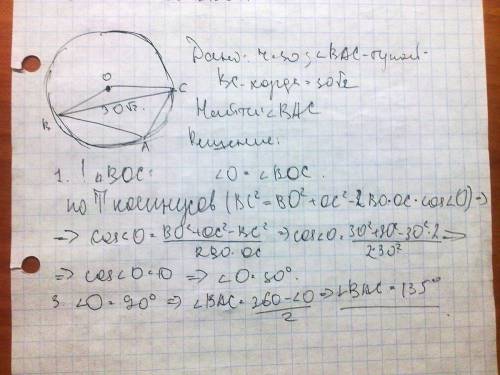 Дано: r=30; ∠BAC-тупой
BC-хорда=30√2
Найти: ∠BAC
Решение:
O
C
30√2.
B
A
1. ΔBOC: ∠O=∠BOC.
по Т косинусов (BC²=BO²+OC²-2BO·OC·cos∠O) ⇒
⇒ cos∠O = BO²+OC²-BC² / 2BO·OC ⇒ cos∠O = 30²+30²-30²·2 / 2·30² ⇒
⇒ cos∠O=0 ⇒ ∠O=90°.
3. ∠O=90° ⇒ ∠BAC = 360-∠O / 2 ⇒ ∠BAC=135°